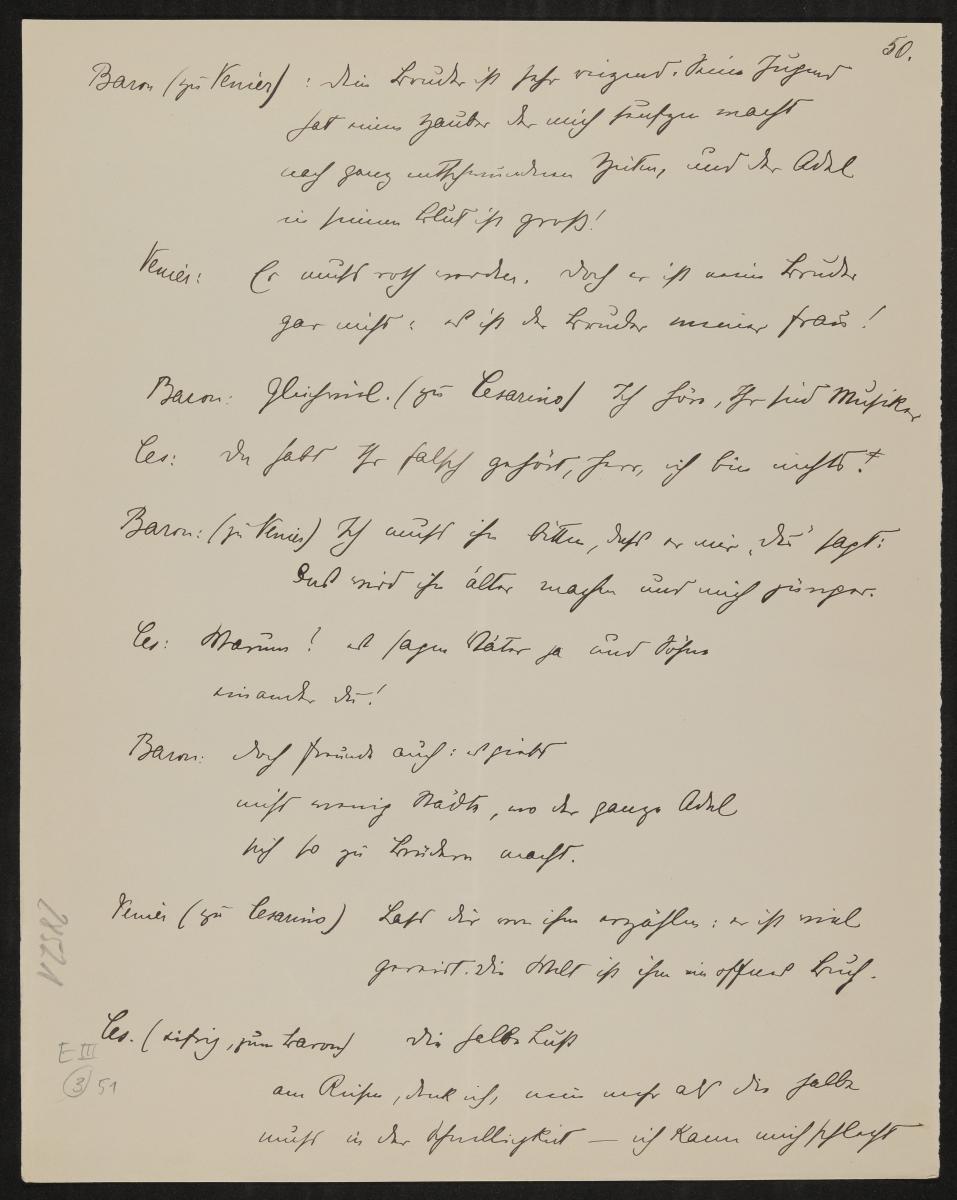 50.
Baron (zu Venier) : dein Bruder ist sehr reizend. Seine Jugend
hat einen Zauber der mich seufzen macht
nach ganz entschwundenen Zeiten, und der Adel
in seinem Blut ist groß!
Venier: Er muss roth werden. Doch er ist mein Bruder
gar nicht: es ist der Bruder meiner Frau!
Baron: Gleichviel. (zu Cesarino) Ich höre, Ihr seid Musiker
Ces: Da habt Ihr falsch gehört, Herr, ich bin nichts!
Baron: (zu Venier) Ich muss ihn bitten, dass er mir „du" sagt:
das wird ihn älter machen und mich jünger.
Ces: Warum? es sagen Väter ja und Söhne
einander du!
Baron: doch Freunde auch: es giebt
nicht wenig Städte, wo der ganze Adel
sich so zu Brüdern macht.
Venier (zu Cesarino) Lass dir von ihm erzählen: er ist viel
gereist. Die Welt ist ihm ein offnes Buch.
Ces. (eifrig, zum Baron) die halbe Lust
am Reisen, denk ich, nein mehr als die halbe
muss in der Schnelligkeit — ich kann mich schlecht
E III
3 51